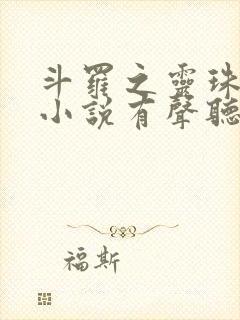 斗羅之靈珠
小說有聲聽
福斯